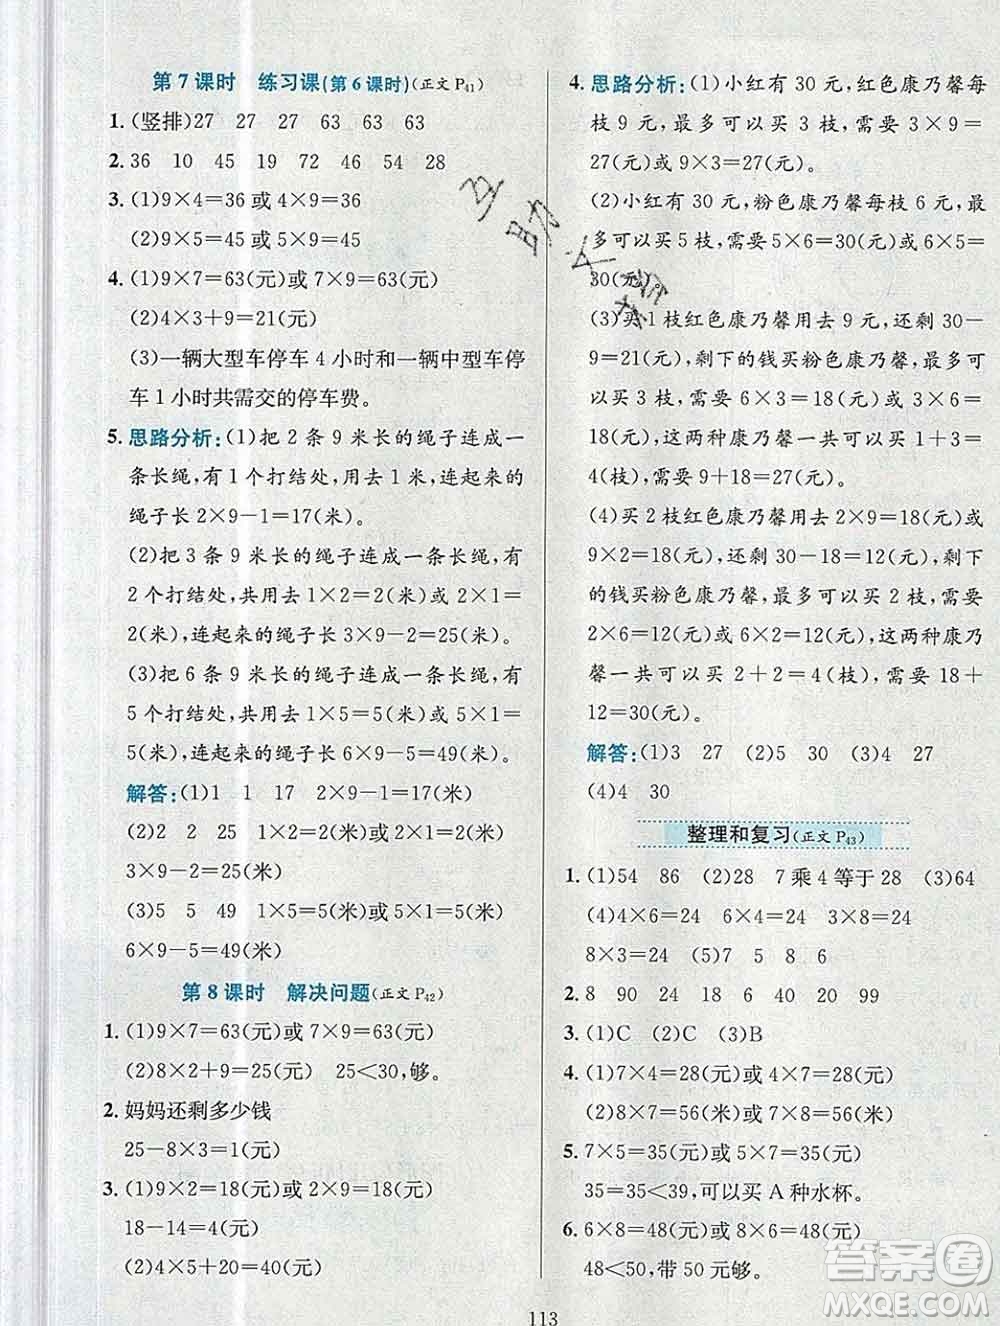 第7课时　练习课(第6课时)(正文P41)
1. (竖排)27　27　27　63　63　63
2. 36　10　45　19　72　54　54　28
3. (1)9×4=36或4×9=36
(2)9×5=45或5×9=45
4. (1)9×7=63(元)或7×9=63(元)
(2)4×3+9=21(元)
(3)一辆大型车停车4小时和一辆中型车停
车1小时共需交的停车费。
5. 思路分析:(1)把2条9米长的绳子连成一
条长绳,有1个打结处,用去1米,连起来的
绳子长2×9-1=17(米)。
(2)把3条9米长的绳子连成一条长绳,有
2个打结处,共用去1×2=2(米)或2×1=
2(米),连起来的绳子长3×9-2=25(米)。
(3)把6条9米长的绳子连成一条长绳,有
5个打结处,共用去1×5=5(米)或5×1=
5(米),连起来的绳子长6×9-5=49(米)。
解答:(1)1　1　17　2×9-1=17(米)
(2)2　2　25　1×2=2(米)或2×1=2(米)
3×9-2=25(米)
(3)5　5　49　1×5=5(米)或5×1=5(米)
6×9-5=49(米)
第8课时　解决问题(正文P42)
1. (1)9×7=63(元)或7×9=63(元)
(2)8×2+9=25(元)　25<30,够。
2. 妈妈还剩多少钱
25-8×3=1(元)
3. (1)9×2=18(元)或2×9=18(元)
18-14=4(元)
(2)4×5=20(元)或5×4=20(元)
4. 思路分析:(1)小红有30元,红色康乃馨每
枝9元,最多可以买3枝,需要3×9=
27(元)或9×3=27(元)。
(2)小红有30元,粉色康乃馨每枝6元,最
多可以买5枝,需要5×6=30(元)或6×5=
30(元)。
(3)买1枝红色康乃馨用去9元,还剩30-
9=21(元),剩下的钱买粉色康乃馨,最多可
以买3枝,需要3×6=18(元)或6×3=
18(元),这两种康乃馨一共可以买1+3=4
(枝),需要9+18=27(元)。
(4)买2枝红色康乃馨用去2×9=18(元)或
9×2=18(元),还剩30-18=12(元),剩下
的钱买粉色康乃馨,最多可以买2枝,需要
2×6=12(元)或6×2=12(元),这两种康乃
馨一共可以买2+2=4(枝),需要18+
12=30(元)。
解答:(1)3　27　(2)5　30　(3)4　27
(4)4　30
整理和复习(正文P43)
1. (1)54　86　(2)28　7乘4等于28　(3)64
(4)4×6=24　6×4=24　3×8=24
8×3=24　(5)7　8
2. 8　90　24　18　6　56　20　99
3. (1)C　(2)A　(3)B
4. (1)7×4=28(元)或4×7=28(元)
(2)8×7=56(米)或7×8=56(米)
5. 7×5=35(元)或5×7=35(元)
35=35<39,可以买A种水杯。
6. 6×8=48(元)或8×6=48(元)
48<50,带50元够。
113
答案圈
MXQE.COM